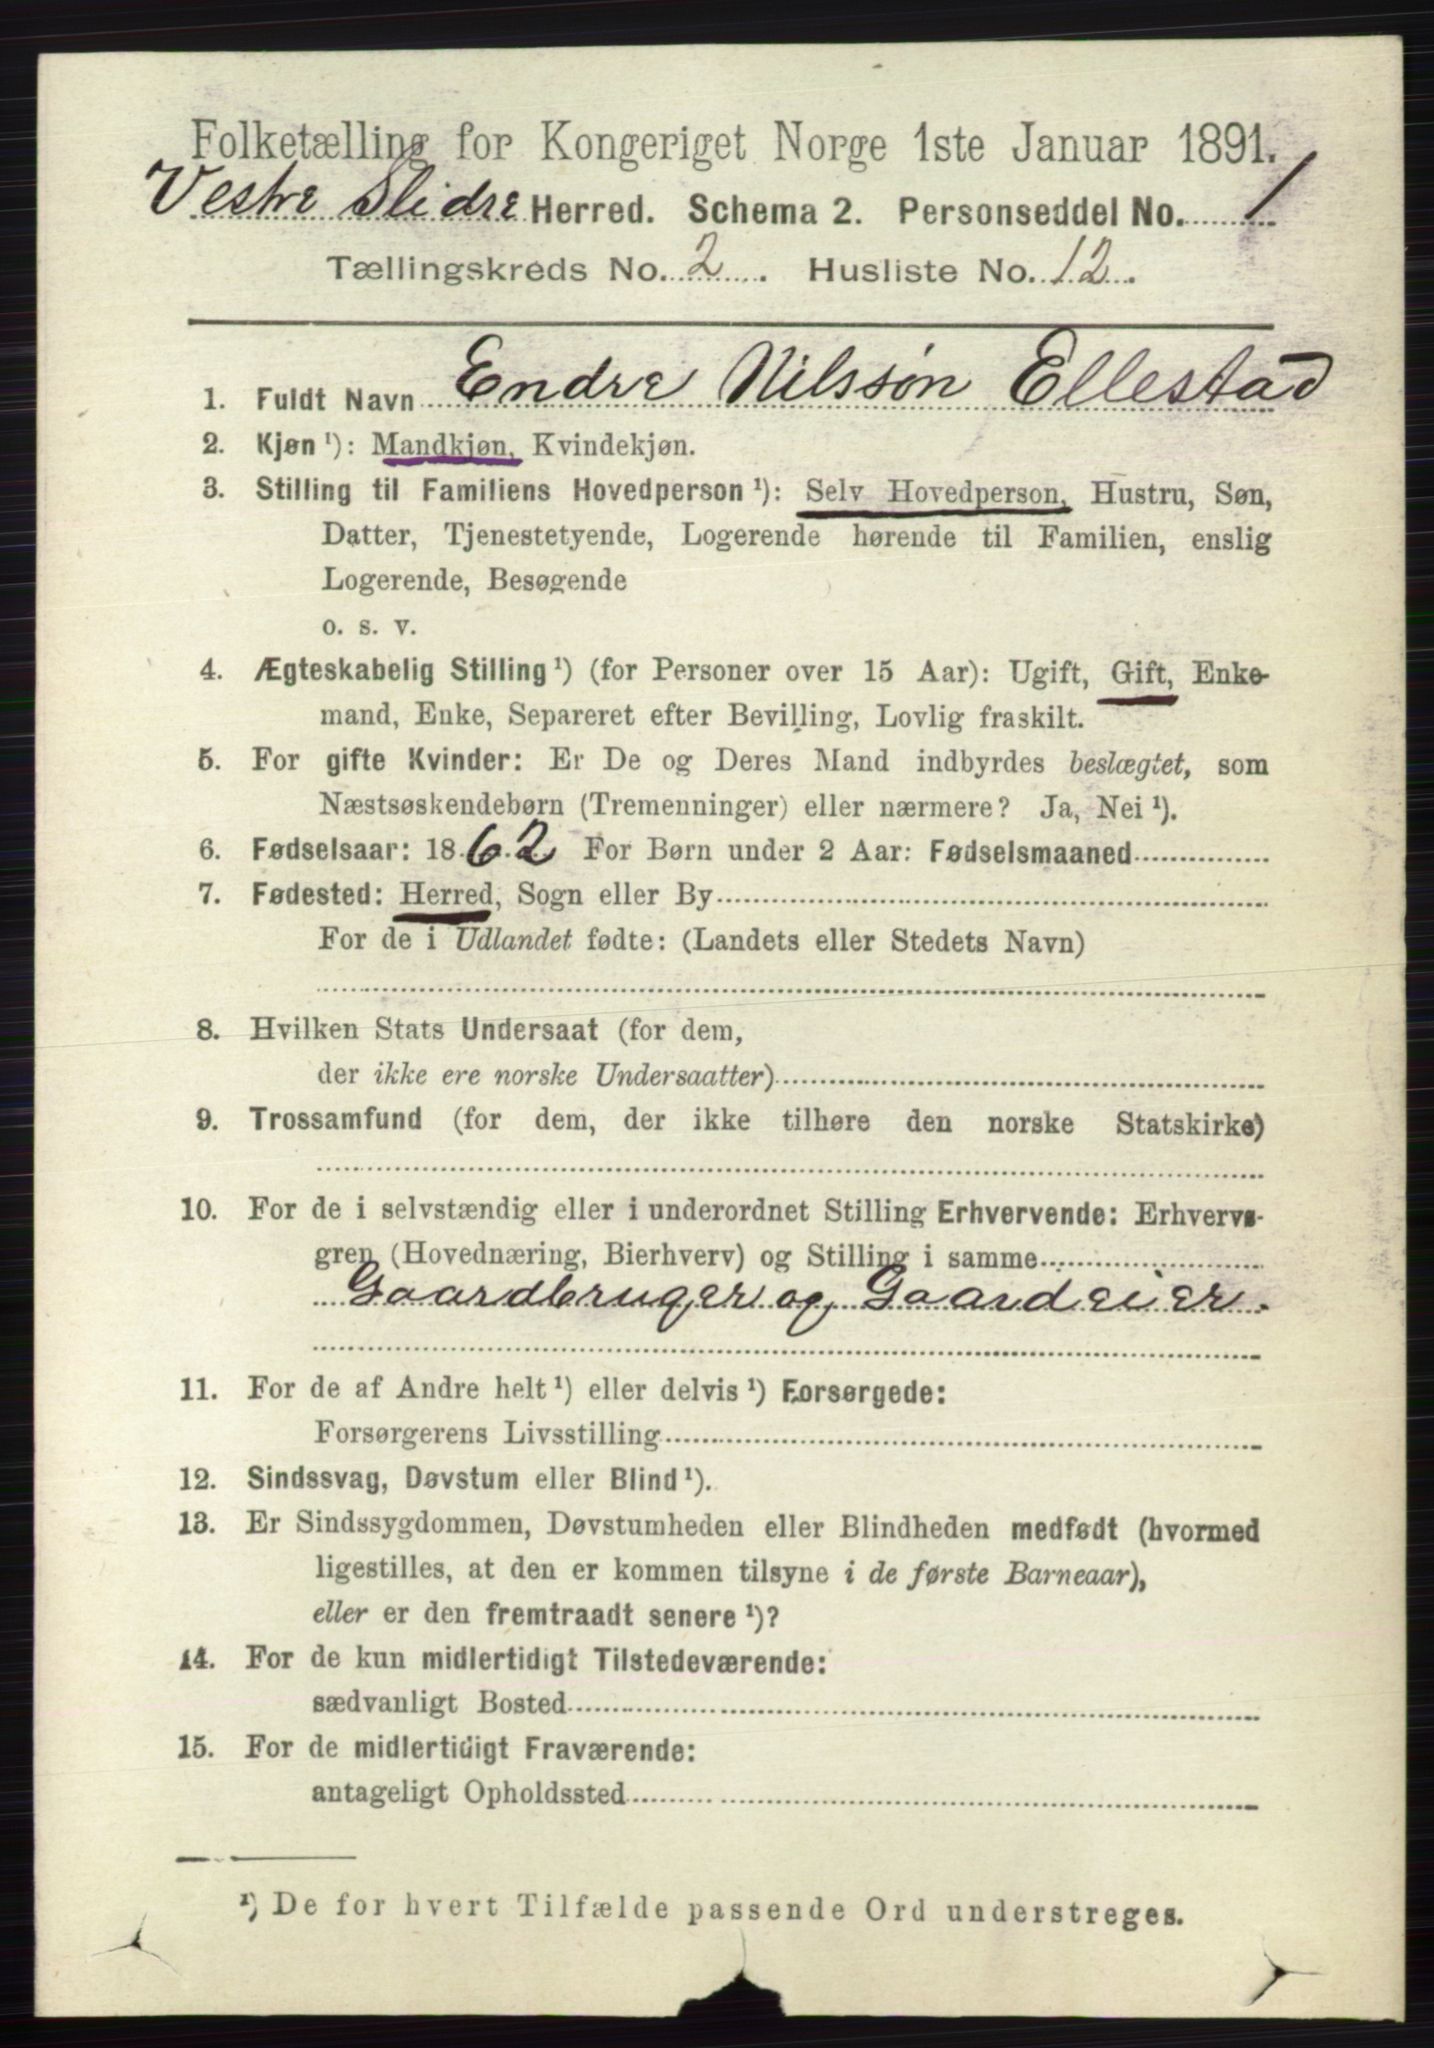 Folketælling for Kongeriget Norge 1ste Januar 1891.
Vestre Slidre Herred. Schema 2. Personseddel No. 1
Tællingskreds No. 2. Husliste No. 12.
1. Fuldt Navn Endre Nilssøn Ellestad
2. Kjøn ¹): Mandkjøn, Kvindekjøn.
3. Stilling til Familiens Hovedperson ¹): Selv Hovedperson, Hustru, Søn,
Datter, Tjenestetyende, Logerende hørende til Familien, enslig
Logerende, Besøgende
o. s. v.
4. Ægteskabelig Stilling ¹) (for Personer over 15 Aar): Ugift, Gift, Enke-
mand, Enke, Separeret efter Bevilling, Lovlig fraskilt.
5. For gifte Kvinder: Er De og Deres Mand indbyrdes beslægtet, som
Næstsøskendebørn (Tremenninger) eller nærmere? Ja, Nei ¹).
6. Fødselsaar: 1862 For Børn under 2 Aar: Fødselsmaaned
7. Fødested: Herred, Sogn eller By
For de i Udlandet fødte: (Landets eller Stedets Navn)
8. Hvilken Stats Undersaat (for dem,
der ikke ere norske Undersaatter)
9. Trossamfund (for dem, der ikke tilhøre den norske Statskirke)
10. For de i selvstændig eller i underordnet Stilling Erhvervende: Erhvervs-
gren (Hovednæring, Bierhverv) og Stilling i samme
Gaardbruger og Gaardeier.
11. For de af Andre helt ¹) eller delvis ¹) Forsørgede:
Forsørgerens Livsstilling
12. Sindssvag, Døvstum eller Blind ¹).
13. Er Sindssygdommen, Døvstumheden eller Blindheden medfødt (hvormed
ligestilles, at den er kommen tilsyne i de første Barneaar),
eller er den fremtraadt senere ¹)?
14. For de kun midlertidigt Tilstedeværende:
sædvanligt Bosted
15. For de midlertidigt Fraværende:
antageligt Opholdssted
¹) De for hvert Tilfælde passende Ord understreges.